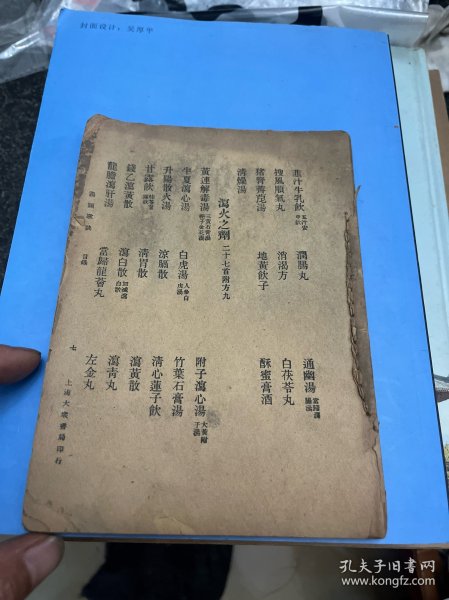 封面设计：吴厚平
韭汁牛乳飲 五汁安中飲
潤腸丸
通幽湯 當歸潤腸湯
搜風順氣丸
消渴方
白茯苓丸
猪腎薺苨湯
地黃飲子
酥蜜膏酒
清燥湯
瀉火之劑 二十七首附方九
黃連解毒湯 三黃石膏湯 梔子金花湯
附子瀉心湯 大黃附子湯
半夏瀉心湯
白虎湯 人參白虎湯
竹葉石膏湯
升陽散火湯
涼膈散
清心蓮子飲
甘露飲
清胃散
瀉黃散
錢乙瀉黃散
瀉白散 加減瀉白散
瀉青丸
龍膽瀉肝湯
當歸龍薈丸
左金丸
湯頭歌訣
目錄
七
上海大衆書局印行
孔夫子旧书网
www.kongfz.com